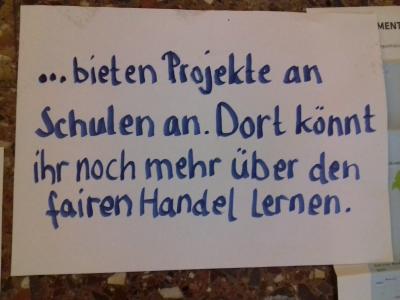 ...bieten Projekte an
Schulen an. Dort könnt
ihr noch mehr über den
fairen Handel lernen.
MENT